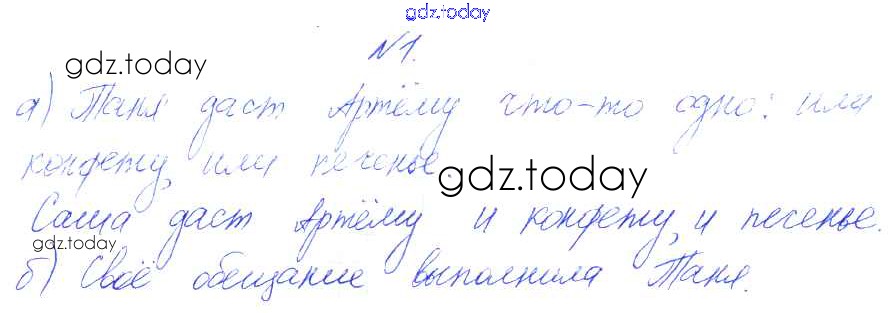 gdz.today
№1.
gdz.today
а) Таня даст Артёму что-то одно: или
конфету, или печенье.
gdz.today
Саша даст Артёму и конфету, и печенье.
gdz.today
б) Своё обещание выполнила Таня.